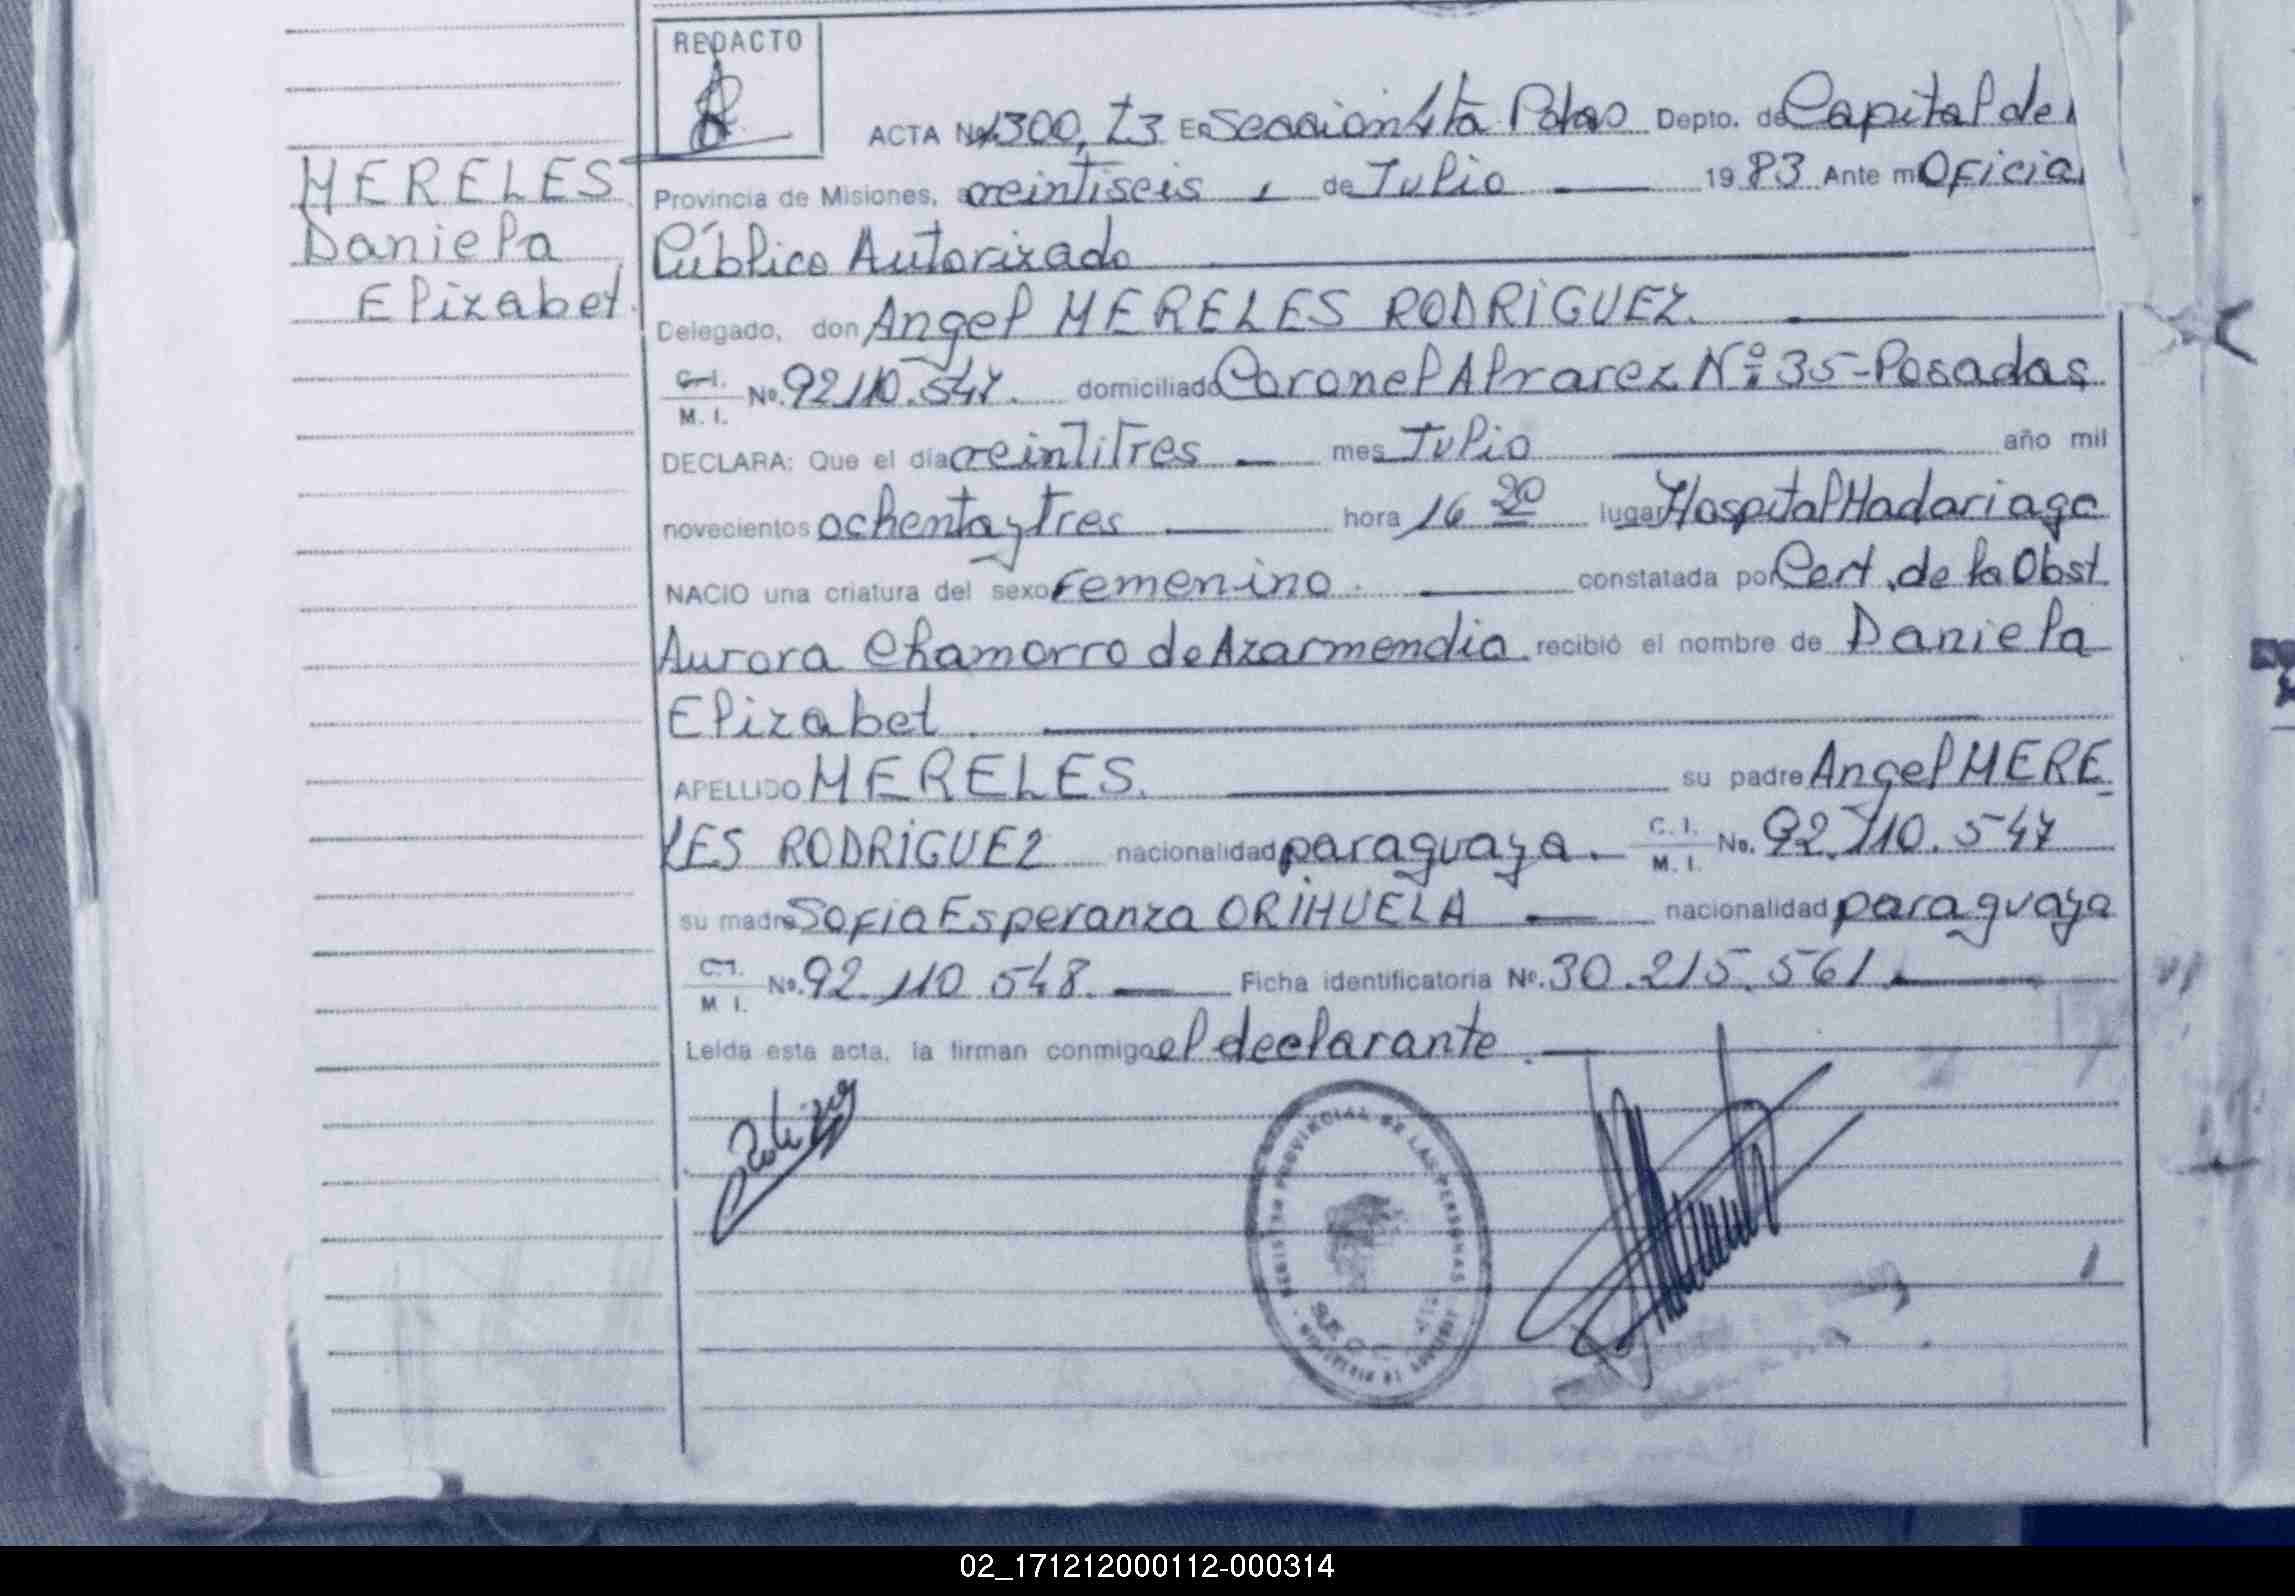 REDACTO
ACTA Nº 1300, T3 En Seccion 4ta Pdas Depto. de Capital de
MERELES
Daniela
Elizabet.
Provincia de Misiones, a veintiseis, de Julio 1983 Ante mi Oficial
Público Autorizado
Delegado, don Angel MERELES RODRIGUEZ.
C.I. M. I. Nº. 92.110.547. domiciliado Coronel Alvarez Nº 35-Posadas
DECLARA: Que el día veintitres mes Julio año mil
novecientos ochenta y tres hora 16 20 lugar Hospital Madariaga
NACIO una criatura del sexo Femenino. constatada por Cert. de la Obst
Aurora Chamorro de Azarmendia recibió el nombre de Daniela
Elizabet
APELLIDO MERELES. su padre Angel MERE
LES RODRIGUEZ nacionalidad paraguaya. C. I. M. I. No. 92.110.547
su madre Sofia Esperanza ORIHUELA nacionalidad paraguaya
C.I. M I. Nº. 92.110.548. Ficha identificatoria Nº. 30.215.561.
Leída esta acta, la firman conmigo el declarante.
REGISTRO PROVINCIAL DE LAS PERSONAS
02_171212000112-000314